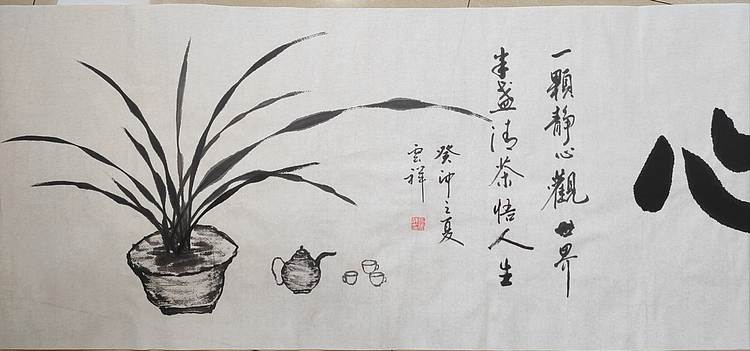 一顆靜心觀世界
半盞清茶悟人生
癸卯之夏
雲祥